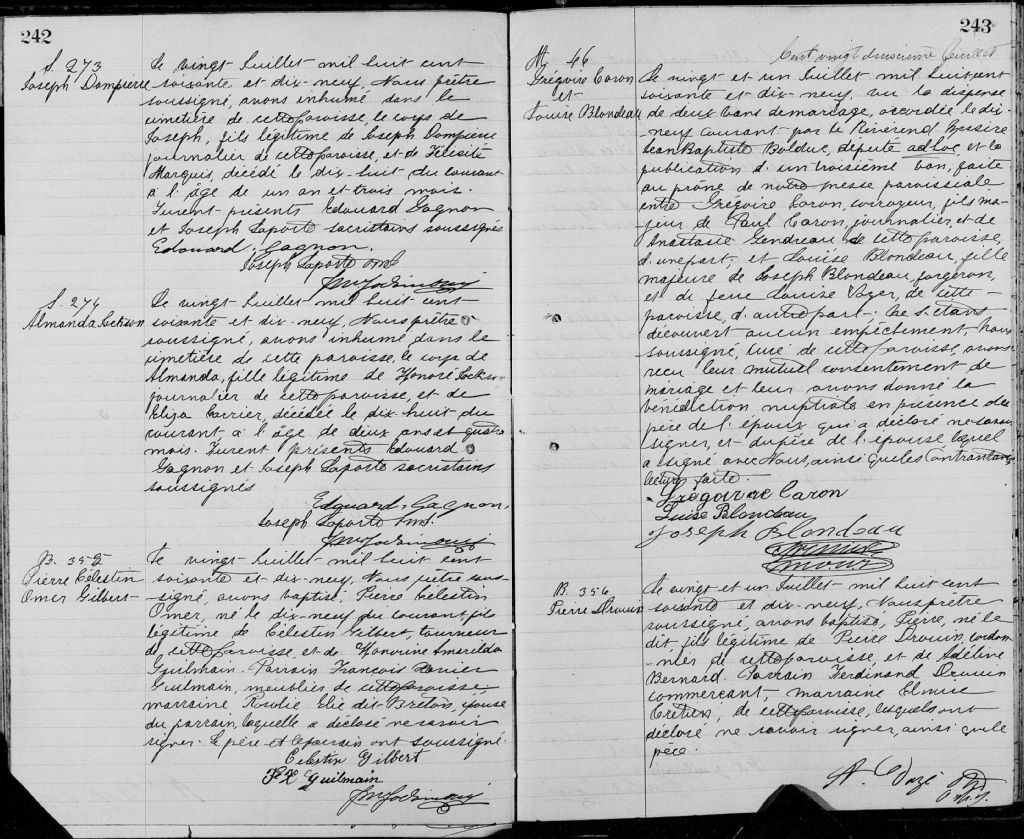 242
S. 273
Joseph Dompierre
Le vingt Juillet mil huit cent
soixante et dix-neuf, Nous prêtre
soussigné, avons inhumé dans le
cimetière de cette paroisse, le corps de
Joseph, fils légitime de Joseph Dompierre
journalier de cette paroisse, et de Félicité
Marquis, décédé le dix-huit du courant
à l'âge de un an et trois mois.
Furent présents Edouard Gagnon
et Joseph Laporte sacristains soussignés
Edouard Gagnon.
Joseph Laporte
S. 274
Almanda Jackson
Le vingt Juillet mil huit cent
soixante et dix-neuf, Nous prêtre
soussigné, avons inhumé dans le
cimetière de cette paroisse, le corps de
Almanda, fille légitime de Honoré
journalier de cette paroisse, et de
Eliza Carrier, décédée le dix-huit du
courant à l'âge de deux ans et quatre
mois. Furent présents Edouard
Gagnon et Joseph Laporte sacristains
soussignés
Edouard Gagnon,
Joseph Laporte
B. 355
Pierre Célestin
Omer Gilbert
Le vingt Juillet mil huit cent
soixante et dix-neuf, Nous prêtre sous-
-signé, avons baptisé Pierre Célestin
Omer, né le dix-neuf du courant, fils
légitime de Célestin Gilbert, tourneur
de cette paroisse, et de Honorine Amarilda
Guilmain. Parrain François Xavier
Guilmain, meublier de cette paroisse,
marraine Rosalie Elie dit Breton, épouse
du parrain, laquelle a déclaré ne savoir
signer. Le père et le parrain ont soussigné.
Celestin Gilbert
F X Guilmain
243
Cent vingt deuxième feuillet
M. 46
Grégoire Caron
et
Louise Blondeau
Le vingt et un Juillet mil huit cent
soixante et dix-neuf, vu la dispense
de deux bans de mariage, accordée le dix-
-neuf courant par le Révérend Messire
Jean Baptiste Bolduc, député ad hoc et la
publication d'un troisième ban, faite
au prône de notre messe paroissiale
entre Grégoire Caron, corroyeur, fils ma-
jeur de Paul Caron, journalier, et de
Anastasie Gendreau de cette paroisse,
d'une part, et Louise Blondeau, fille
majeure de Joseph Blondeau, forgeron,
et de feue Louise Voyer, de cette
paroisse, d'autre part. Ne s'étant
découvert aucun empêchement, Nous
soussigné, curé de cette paroisse, avons
reçu leur mutuel consentement de
mariage et leur avons donné la
bénédiction nuptiale en présence du
père de l'époux qui a déclaré ne savoir
signer, et du père de l'épouse lequel
a signé avec Nous, ainsi que les contractants
lecture faite.
Grégoire Caron
Luise Blondeau
Joseph Blondeau
B. 356
Pierre Drouin
Le vingt et un Juillet mil huit cent
soixante et dix-neuf, Nous prêtre
soussigné, avons baptisé, Pierre, né le
dit, fils légitime de Pierre Drouin, cordon-
-nier de cette paroisse, et de Adéline
Bernard. Parrain Ferdinand Drouin
commerçant marraine Elmire
Cretien, de cette paroisse, lesquels ont
déclaré ne savoir signer, ainsi que le
père.